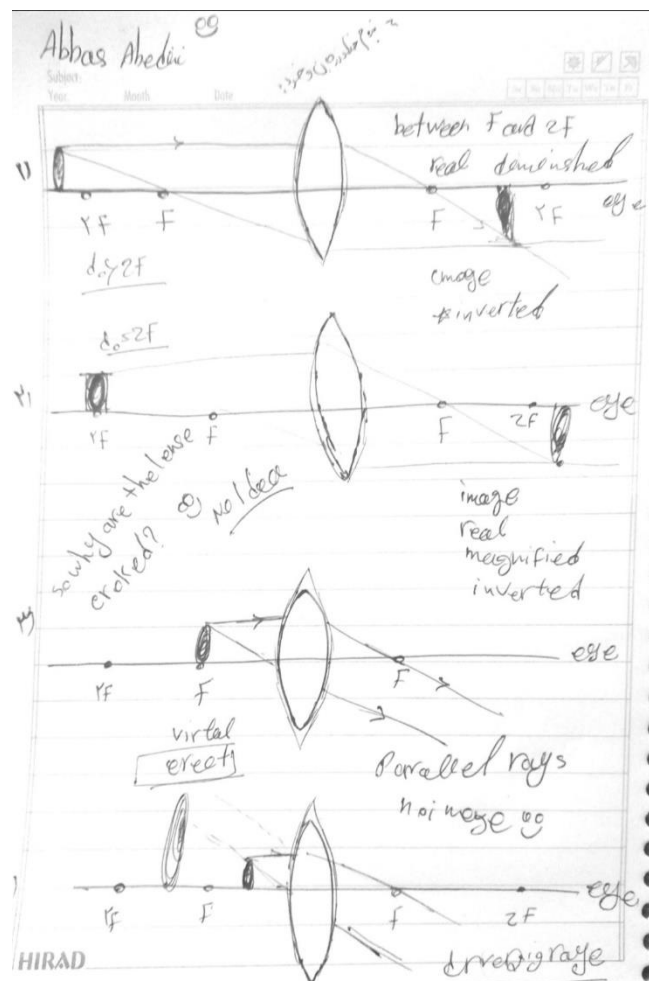 Abbas Abedini
Subject:
Year Month Date
۱)
between F and 2F
real diminished
۲F F F ۲F eye
do>2F
image
inverted
do=2F
۲)
۲F F F 2F eye
so why are the lense
croked?
No Idea
image
real
magnified
inverted
۳)
۲F F F eye
virtal
erect
Parallel rays
no image
۲F F F 2F eye
HIRAD